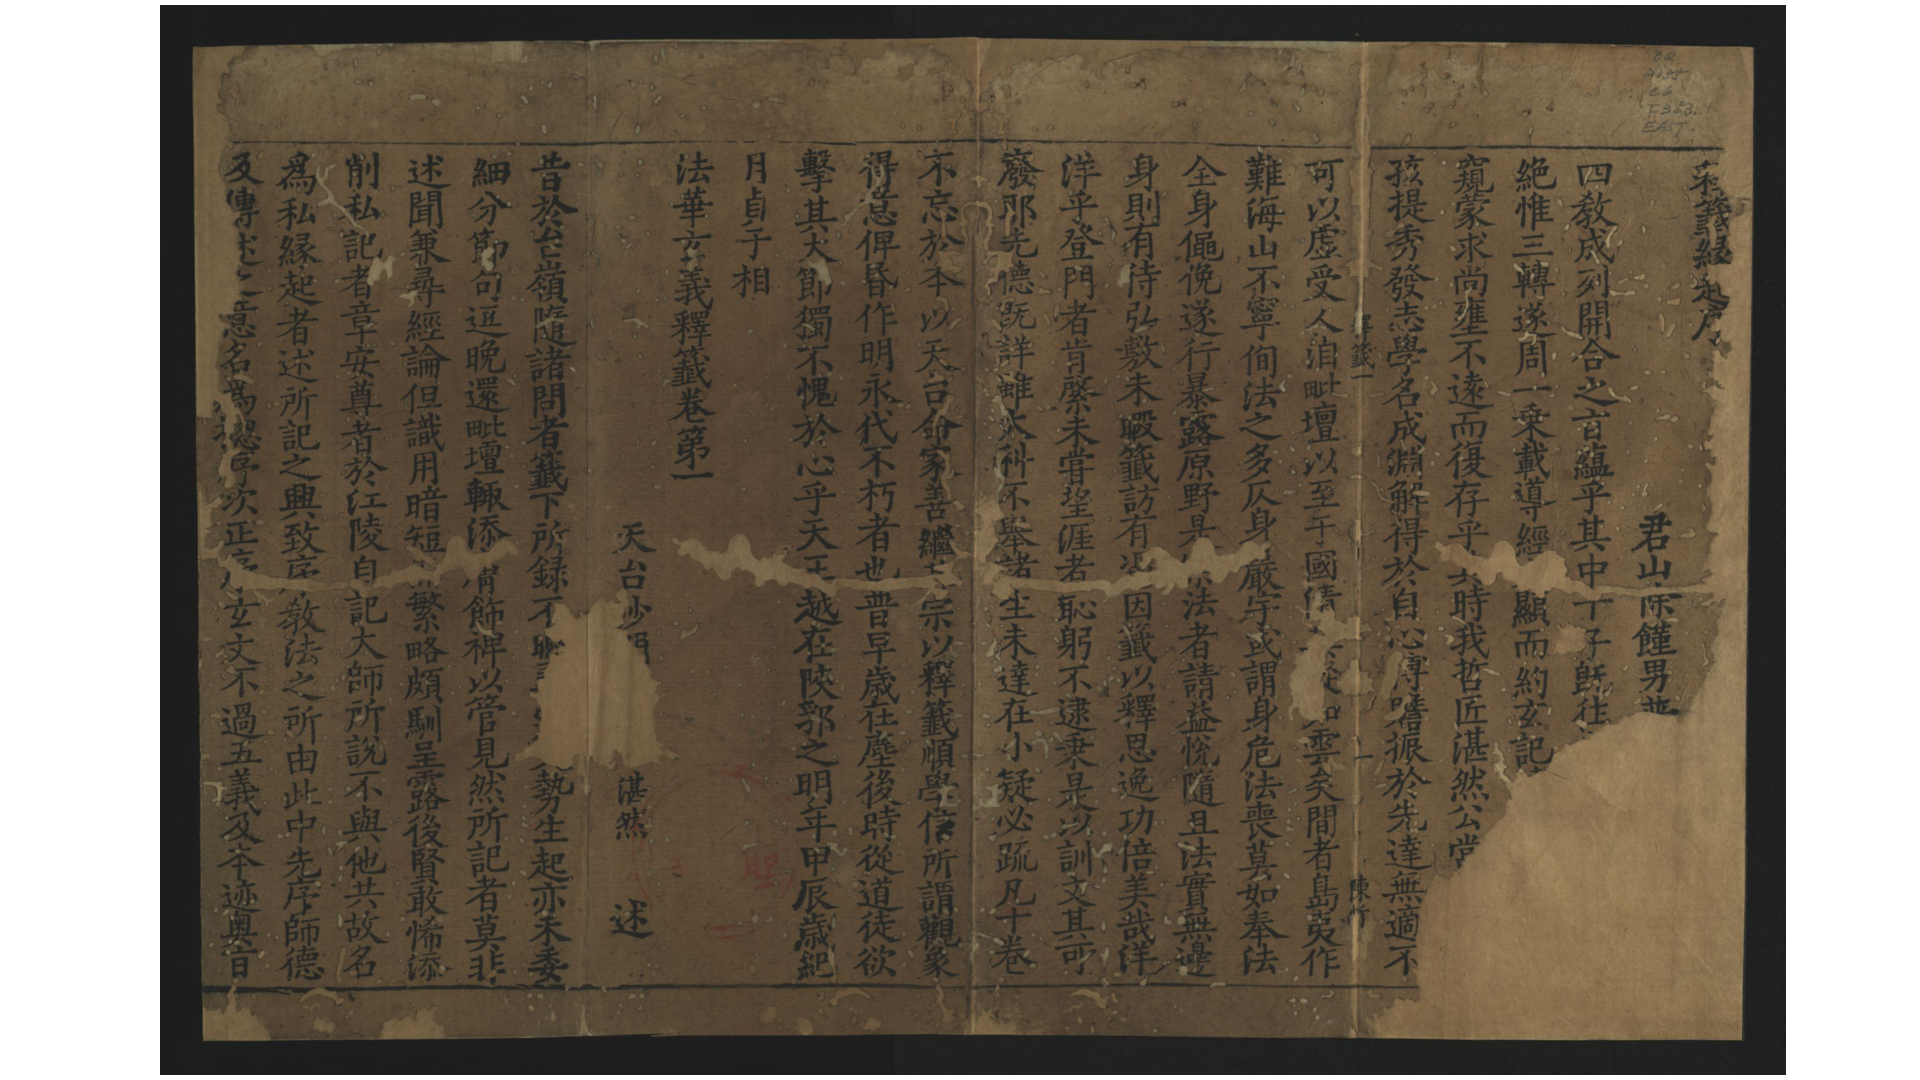 釋籤緣起序
君山 饉男
四教成列開合之言蘊乎其中 十子既往
絶惟三轉遂周一乘載導經 顯而約玄記
窺蒙求尚壅不遠而復存乎 時我哲匠湛然公當
孩提秀發志學名成淵解得於自心博贍振於先達無適不
釋籤一 一 陳竹
可以虛受人洎毗壇以至于國 從如雲矣間者島夷作
難海山不寧徇法之多仄身嚴宇或謂身危法喪莫如奉法
全身僶俛遂行暴露原野是 法者請益悅隨且法實無邊
身則有待弘敷未暇籤訪有 因籤以釋思逸功倍美哉洋
洋乎登門者肯綮未嘗望涯者恥躬不逮乘是以訓文其可
廢耶先德既詳雖 科不舉諸生未達在小疑必疏凡十卷
不忘於本以天台命家善繼 宗以釋籤順學信所謂觀象
得意俾昏作明永代不朽者也普早歲在塵後時從道徒欲
擊其大節獨不愧於心乎天王越在陝郛之明年甲辰歲紀
月貞于相
法華玄義釋籤卷第一
天台沙門 湛然 述
昔於台嶺隨諸問者籤下所録不 勢生起亦未委
細分節句逗晚還毗壇輒添 飾裨以管見然所記者莫非
述聞兼尋經論但識用暗短 繁略頗馴呈露後賢敢悕添
削私記者章安尊者於江陵自記大師所說不與他共故名
爲私緣起者述所記之興致序教法之所由此中先序師德
及傳述之意名爲揔序次正序 玄文不過五義及本迹奧旨